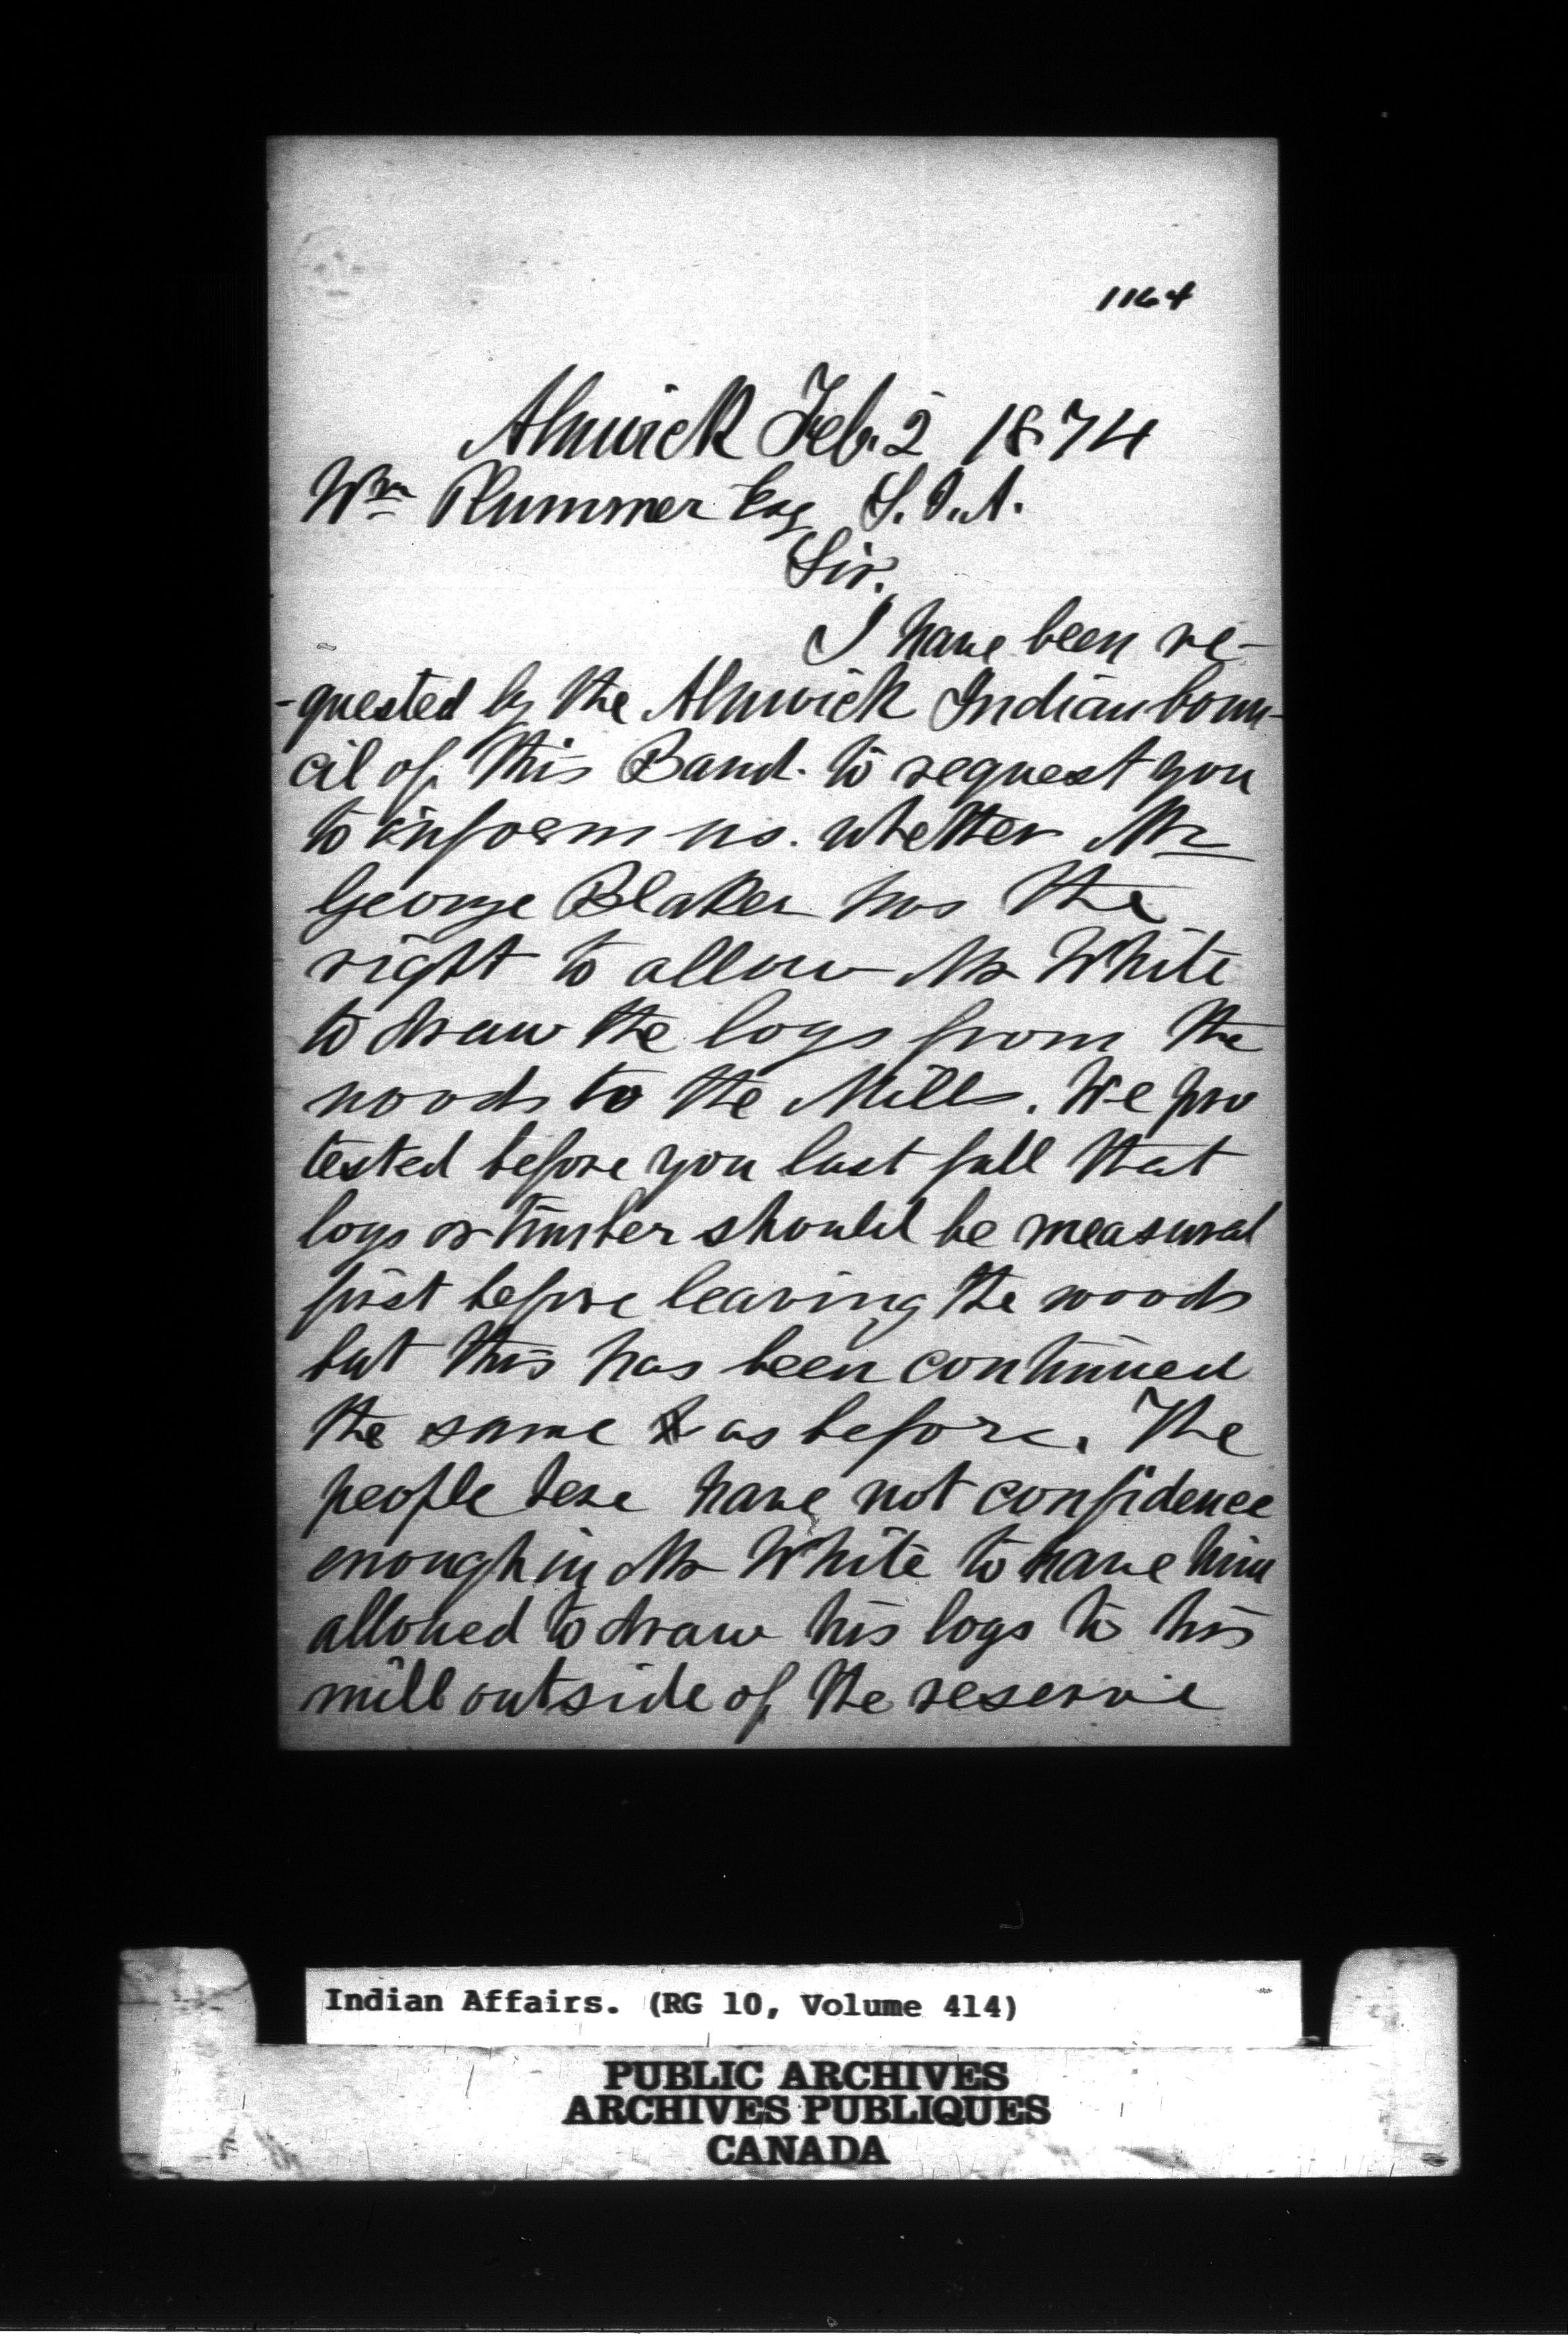 1164
Alnwick Feb. 2 1874
Wm Plummer Esq S.I.A.
Sir.
I have been re-
-quested by the Alnwick Indian Coun-
cil of this Band. to request you
to inform us. whether Mr
George Blaker has the
right to allow Mr White
to draw the logs from the
woods to the Mills. We pro
tested before you last fall that
logs or timber should be measured
first before leaving the woods
but this has been continued
the same as before. The
people here have not confidence
enough in Mr White to have him
allowed to draw his logs to his
mill outside of the reserve
Indian Affairs. (RG 10, Volume 414)
PUBLIC ARCHIVES
ARCHIVES PUBLIQUES
CANADA